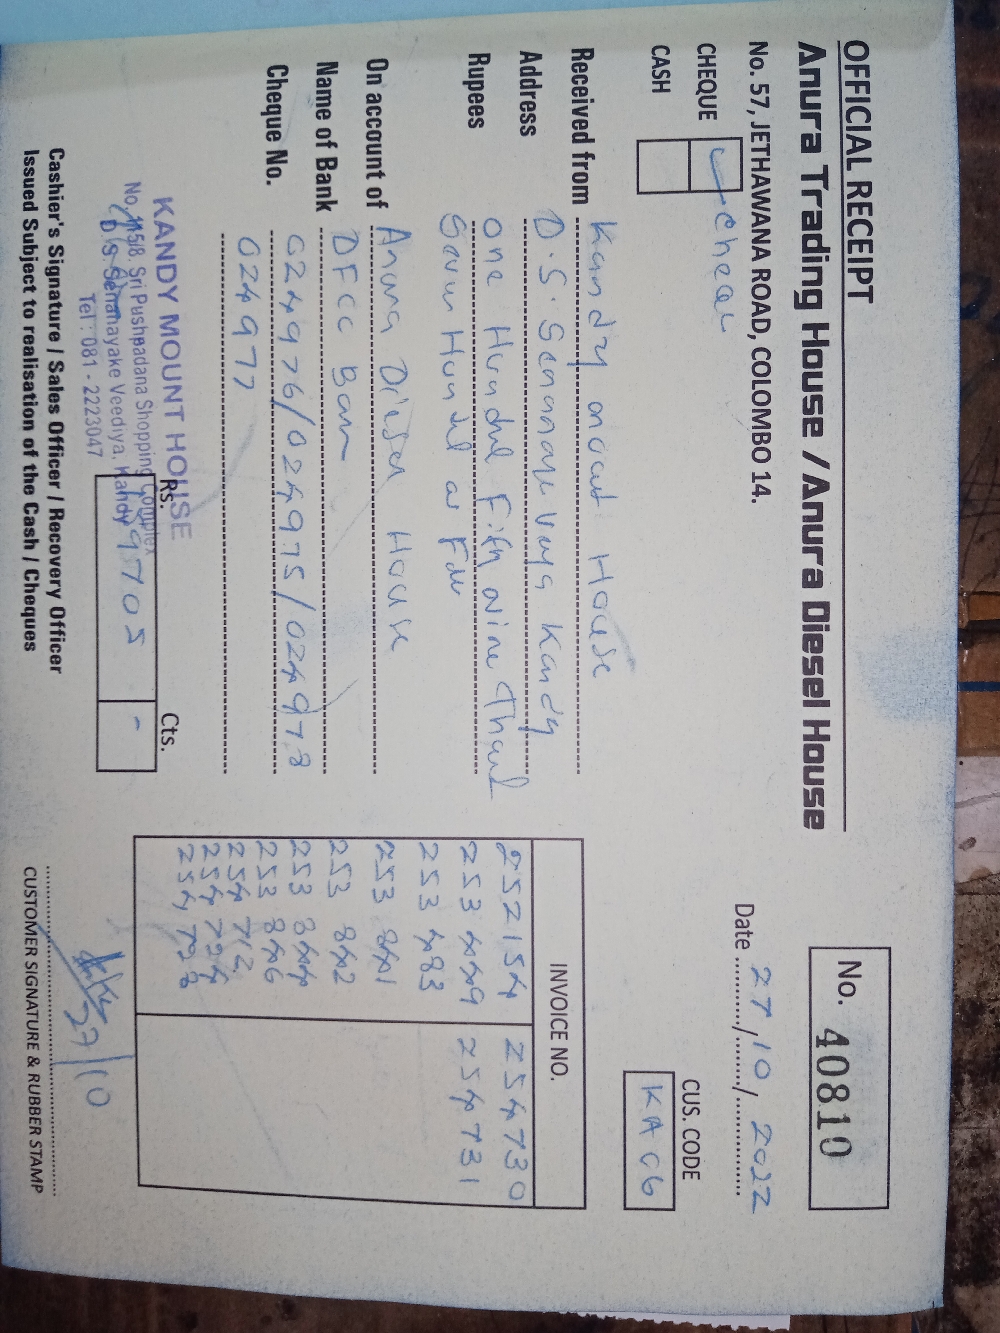 OFFICIAL RECEIPT
Anura Trading House / Anura Diesel House
No. 57, JETHAWANA ROAD, COLOMBO 14.
No. 40810
Date 27/10/2022
CHEQUE
CASH
CUS. CODE
KA 06
Received from Kandy mount House
Address D.S. Kandy
Rupees one Fifty nine
On account of House
Name of Bank DFCC
Cheque No. 024976/024975/024978
024977
INVOICE NO.
252154 254730
253449 254731
253483
253841
253842
253844
253846
254712
254728
KANDY MOUNT HOUSE
Sri Pushpadana Shopping Complex
Senanayake Veediya, Kandy
Tel : 081 - 2223047
Rs. Cts.
159705 -
27/10
Cashier's Signature / Sales Officer / Recovery Officer
Issued Subject to realisation of the Cash / Cheques
CUSTOMER SIGNATURE & RUBBER STAMP